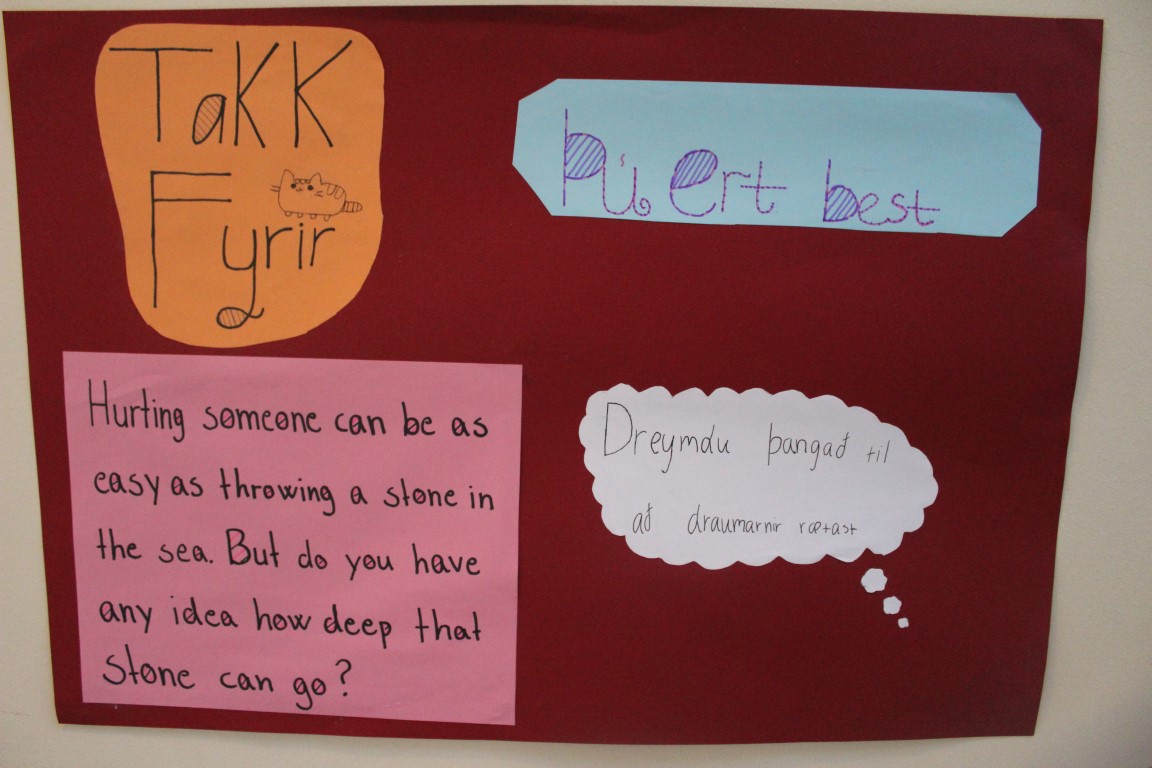 TaKK
Fyrir
Þú Ert best
Hurting someone can be as
easy as throwing a stone in
the sea. But do you have
any idea how deep that
Stone can go?
Dreymdu þangað til
að draumarnir rætast